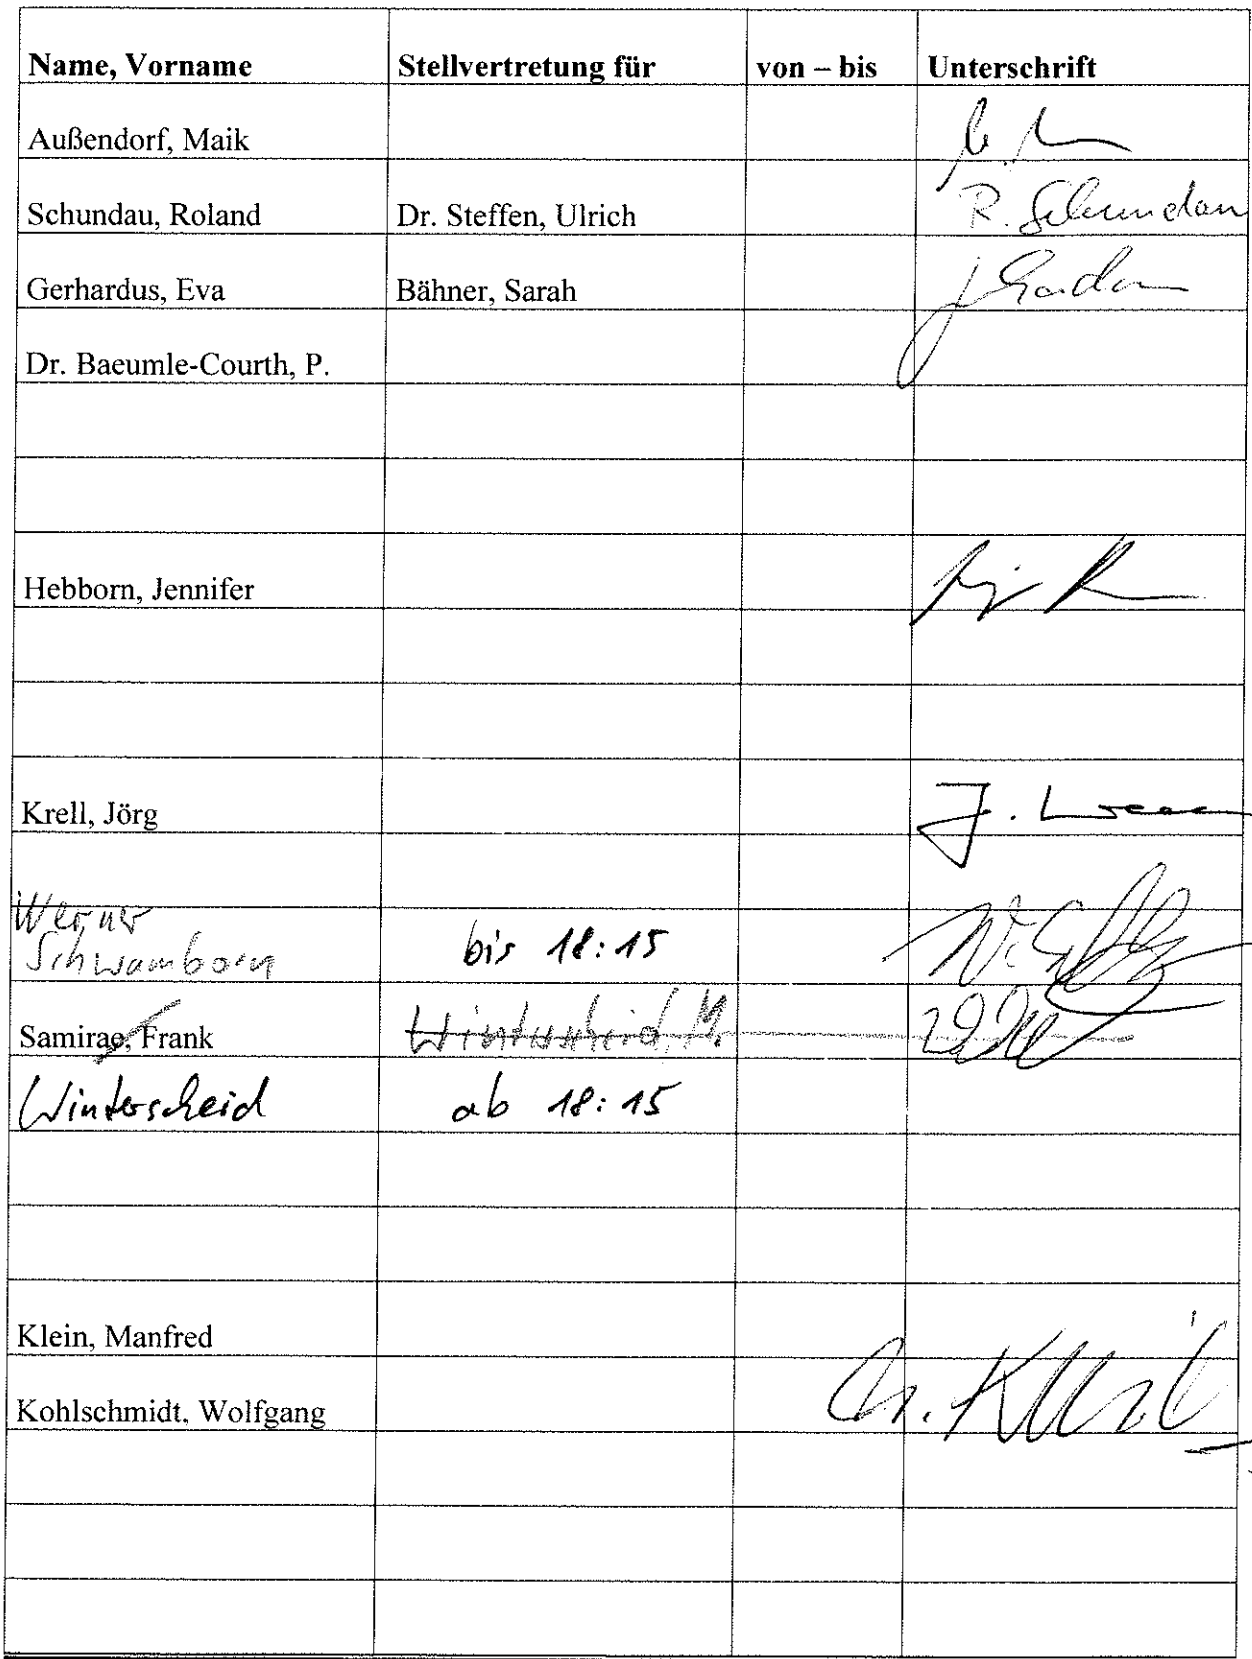 Name, Vorname Stellvertretung für von – bis Unterschrift
Außendorf, Maik
Schundau, Roland Dr. Steffen, Ulrich R. Schundau
Gerhardus, Eva Bähner, Sarah
Dr. Baeumle-Courth, P.
Hebborn, Jennifer
Krell, Jörg J. Krell
Werner
Schwamborn bis 18:15
Samirae, Frank Winterscheid, M.
Winterscheid ab 18:15
Klein, Manfred
Kohlschmidt, Wolfgang